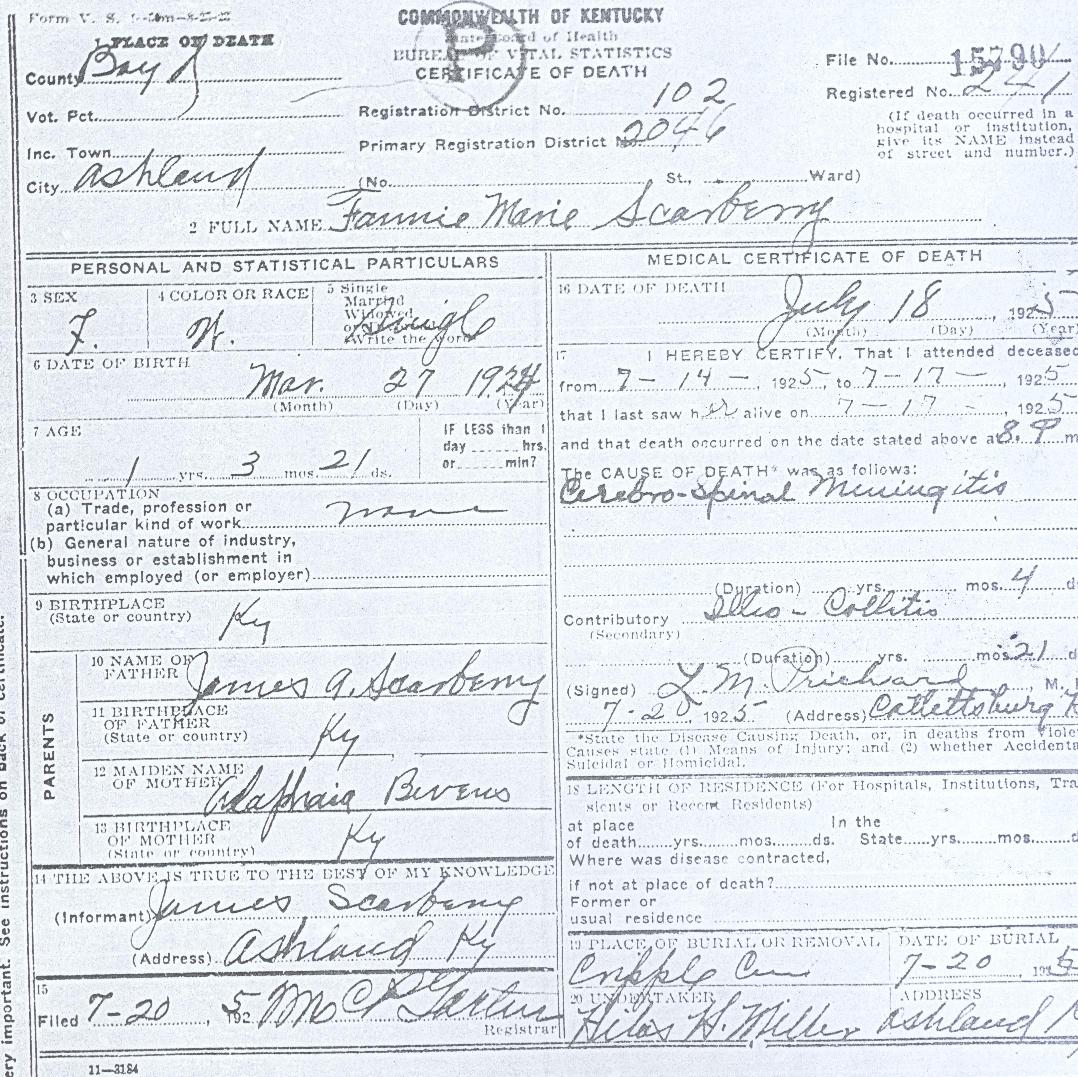 Form V. S.
COMMONWEALTH OF KENTUCKY
State Board of Health
BUREAU OF VITAL STATISTICS
CERTIFICATE OF DEATH
1 PLACE OF DEATH
County Boyd
Vot. Pct.
Inc. Town
City Ashland
(No. St., Ward)
Registration District No. 102
Primary Registration District No. 2046
File No. 15790
Registered No. 241
(If death occurred in a
hospital or institution,
give its NAME instead
of street and number.)
2 FULL NAME Fannie Marie Scarberry
PERSONAL AND STATISTICAL PARTICULARS
3 SEX
F.
4 COLOR OR RACE
W.
5 Single
Married
Widowed
or Divorced
(Write the word)
Single
6 DATE OF BIRTH
Mar. 27 1924
(Month) (Day) (Year)
7 AGE
1 yrs. 3 mos. 21 ds.
IF LESS than 1
day hrs.
or min?
8 OCCUPATION
(a) Trade, profession or
particular kind of work none
(b) General nature of industry,
business or establishment in
which employed (or employer)
9 BIRTHPLACE
(State or country) Ky
PARENTS
10 NAME OF
FATHER James A. Scarberry
11 BIRTHPLACE
OF FATHER
(State or country) Ky
12 MAIDEN NAME
OF MOTHER Bivens
13 BIRTHPLACE
OF MOTHER
(State or country) Ky
14 THE ABOVE IS TRUE TO THE BEST OF MY KNOWLEDGE
(Informant) James Scarberry
(Address) Ashland Ky
15
Filed 7-20, 1925
Registrar
MEDICAL CERTIFICATE OF DEATH
16 DATE OF DEATH
July 18, 1925
(Month) (Day) (Year)
17 I HEREBY CERTIFY, That I attended deceased
from 7-14-, 1925, to 7-17-, 1925
that I last saw her alive on 7-17-, 1925
and that death occurred on the date stated above at 8. P m
The CAUSE OF DEATH* was as follows:
Cerebro-Spinal Meningitis
(Duration) yrs. mos. 4 d
Contributory Illeo-Collitis
(Secondary)
(Duration) yrs. mos. 21 d
(Signed) L. M. Prichard, M.
7-20 1925 (Address) Catlettsburg K
*State the Disease Causing Death, or, in deaths from Viole
Causes state (1) Means of Injury; and (2) whether Accidenta
Suicidal or Homicidal.
18 LENGTH OF RESIDENCE (For Hospitals, Institutions, Tra
sients or Recent Residents)
at place In the
of death yrs. mos. ds. State yrs. mos. d
Where was disease contracted,
if not at place of death?
Former or
usual residence
19 PLACE OF BURIAL OR REMOVAL
Cripple
DATE OF BURIAL
7-20 1925
20 UNDERTAKER
Hilas H. Miller
ADDRESS
Ashland
11—3184
ery important. See instructions on back of certificate.